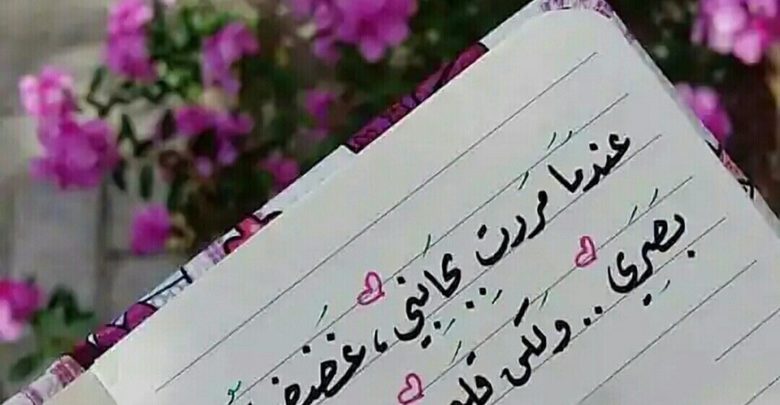 عندما مَرَرتِ بجَانِبِي ، غضضـ
بَصَرِي .. ولَكن قلـ